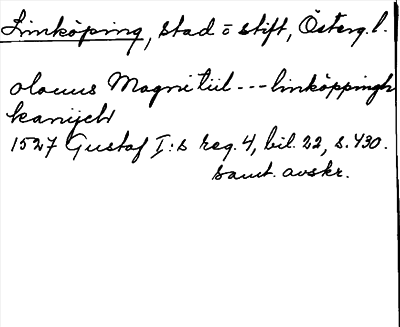 Linköping, stad o stift, Österg. l.
olauus Magni tiil --- linköppingh
kanijch
1527 Gustaf I:s reg. 4, bil. 22, s. 430.
samt. avskr.